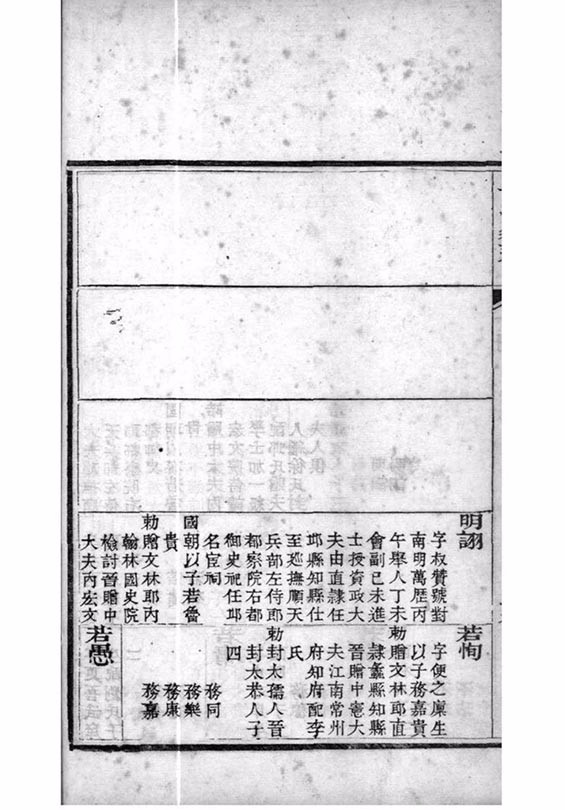 明詡
字叔贊號對
南明萬歷丙
午舉人丁未
會副已未進
士授資政大
夫由直隸任
邱縣知縣仕
至巡撫順天
兵部左侍郎
都察院右都
御史祀任邱
名宦祠
國朝以子若魯
貴
勅贈文林郎內
翰林國史院
檢討晉贈中
大夫內宏文
若恂
字便之廩生
以子務嘉貴
勅贈文林郎直
隸蠡縣知縣
晉贈中憲大
夫江南常州
府知府配李
氏
勅封太孺人晉
封太恭人子
四
務同
務樂
務康
務嘉
若愚